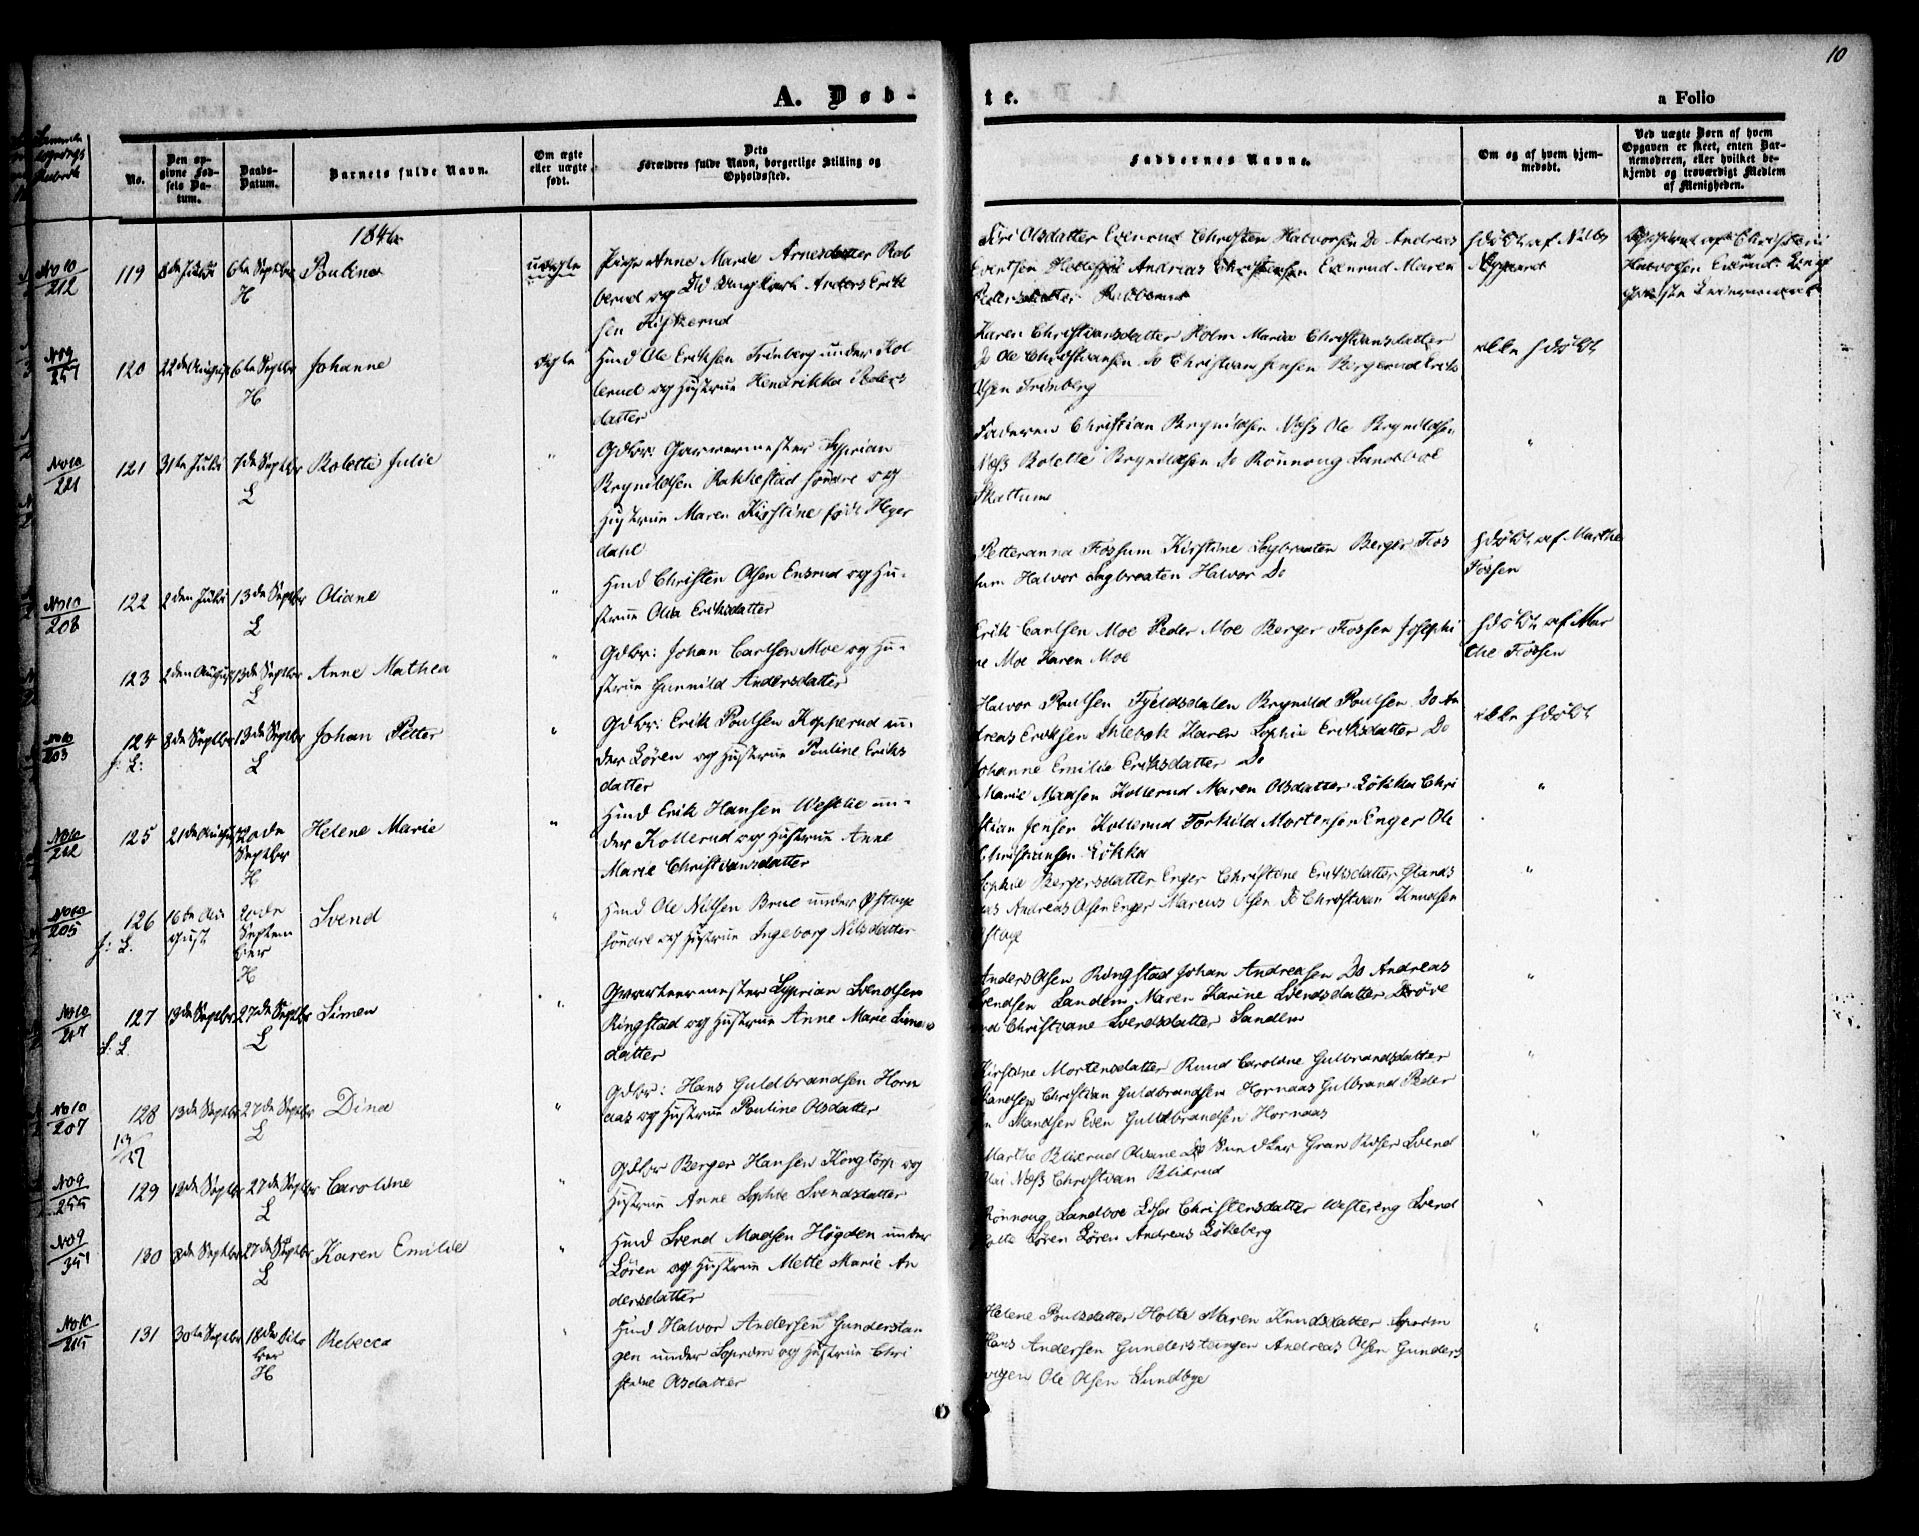 10
A. Døb-
te.
a Folio
No.
Den op-
givne Fød-
sels Da-
tum.
Daabs-
Datum.
Barnets fulde Navn.
Om ægte
eller uægte
født.
Dets
Forældres fulde Navn, borgerlige Stilling og
Opholdssted.
Faddernes Navne.
Om og af hvem hjem-
medøbt.
Ved uægte Børn af hvem
Opgaven er skeet, enten Bar-
nemoderen, eller hvilket be-
kjendt og troværdigt Medlem
af Menigheden.
1846
No 10
212
119
8de Juli
6te Septbr
H
Pauline
uægte
Pige Anne Marie Arnesdatter Rab
berud og Ungkarl Anders Erik
sen
Siri Olsdatter Evenrud Christen Halvorsen Do Andreas
Andreas Christensen Evenrud Maren
Pedersdatter Rabberud
hdøbt af Nils
Nygaard
120
22de August
6te Septbr
H
Johanne
ægte
Hmd Ole Eriksen Trønberg under Kol
lerud og Hustrue Henrikka
datter
Karen Christiansdatter Holm Marie Christiansdatter
Do Ole Christiansen Do Christian Jensen Bergerud Erik
Olsen Trønberg
ikke hdøbt
No 10
221
121
31te Juli
7de Septbr
L
Bolette Julie
"
Gdbr: Garvermester Syprian
Brynildsen Rakkestad søndre og
Hustrue Maren Kirstine født Heyer
dahl
Faderen Christian Brynildsen Næss Ole Brynildsen
Næss Bolette Brynildsen Do Rønnoug Sandboe
Skattum
"
No 10
208
122
2den Juli
13de Septbr
L
Oliane
"
Hmd Christen Olsen Ensrud og Hu-
strue Olia Eriksdatter
Petteranna Fossum Kirstine Sagbraaten Berger Fos
sum Halvor Sagbraaten Halvor Do
hdøbt af Marthe
Fossen
123
2den August
13de Septbr
L
Anne Mathea
"
Gdbr: Johan Carlsen Moe og Hu-
strue Gunnild Andersdatter
Erik Carlsen Moe Peder Moe Berger Fossen Josephi
ne Moe Karen Moe
hdøbt af Mar
the Fossen
No 10
203
124
8de Septbr
13de Septbr
L
Johan Petter
"
Gdbr: Erik Poulsen Kopperud un-
der Søren og Hustrue Pauline Eriks
datter
Halvor Poulsen Fjeldsdalen Brynild Poulsen Do An
dreas Eriksen Shlebek Karen Sophie Eriksdatter Do
Johanne Emilie Eriksdatter Do
ikke hdøbt
No 10
125
21de August
20de
Septbr
H
Helene Marie
"
Hmd Erik Hansen Westlie un-
der Kollerud og Hustrue Anne
Marie Christiansdatter
Marie Madsen Kollerud Maren Olsdatter Løkka Chri
stian Jensen Kollerud Torkild Mortensen Enger Ole
Christiansen Løkka
"
205
126
16de Au
gust
20de
Septem
ber
H
Svend
"
Hmd Ole Nilsen Brue under Østbye
søndre og Hustrue Ingeborg Nilsdatter
Sophie Bergersdatter Enger Christine Eriksdatter
Andreas Olsen Enger Marcus Olsen Do Christian Knudsen
Østbye
"
No 10
217
127
13de Septbr
27de Septbr
L
Simen
"
Gvarteermester Syprian Svendsen
Ringstad og Hustrue Anne Marie Simens
datter
Anders Olsen Ringstad Johan Andreasen Do Andreas
Svendsen Sandem Maren Karine Svendsdatter
Christiane Svendsdatter Sandem
"
No 10
207
128
13de Septbr
27de Septbr
L
Dina
"
Gdbr: Hans Guldbrandsen Horn
aas og Hustrue Pauline Olsdatter
Kirstine Mortensdatter Ruud Caroline Gulbrandsdatter
Christian Guldbrandsen Hornaas Gulbrand Peder
Even Guldbrandsen Hornaas
"
No 9
255
129
13de Septbr
27de Septbr
L
Caroline
"
Gdbr Berger Hansen Kongtorp og
Hustrue Anne Sophie Svendsdatter
Marthe Blixrud Oliane Do Gran Svend
Næss Christian Blixrud
"
No 9
130
8de Septbr
27de Septbr
L
Karen Emilie
"
Hmd Svend Madsen Høgden under
Søren og Hustrue Mette Marie An
dersdatter
Rønnoug Sandboe Lisa Christensdatter Westereng Svend
Holte Søren Søren Andreas Løkeberg
No 10
215
131
30te Septbr
18de Octo
ber
H
Rebecca
Hmd Halvor Andersen Gunderstan
gen under Soprim og Hustrue Chri
stine Olsdatter
Helene Poulsdatter Holte Maren Knudsdatter Soprim
Hans Andersen Gunderstangen Andreas Olsen Gunders
Ole Olsen Sundbye
"